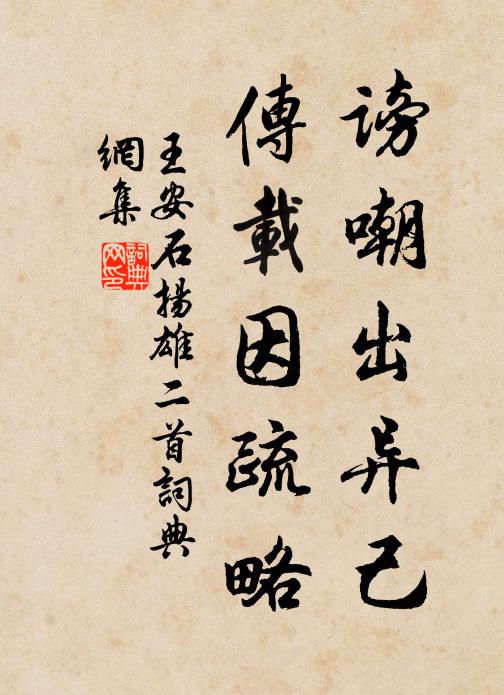 謗嘲出异己
傳載因疏略
王安石揚雄二首詞典
網集
詞典
网印